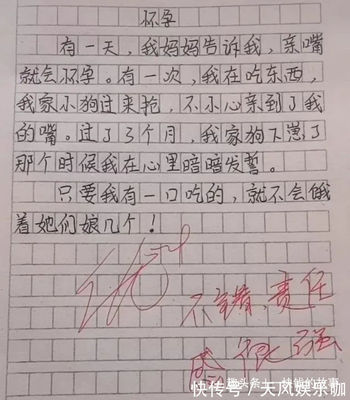 怀孕
有一天，我妈妈告诉我，亲嘴
就会怀孕。有一次，我在吃东西，
我家小狗过来抢，不小心亲到了我
的嘴。过了3个月，我家狗下崽了
那个时候我在心里暗暗发誓。
只要我有一口吃的，就不会饿
着她们娘几个！
不错，责任
感很强
快传号/天凤娱乐咖